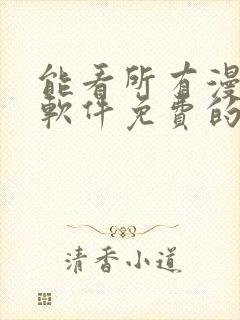 能看所有漫
軟件免費的
清香小道